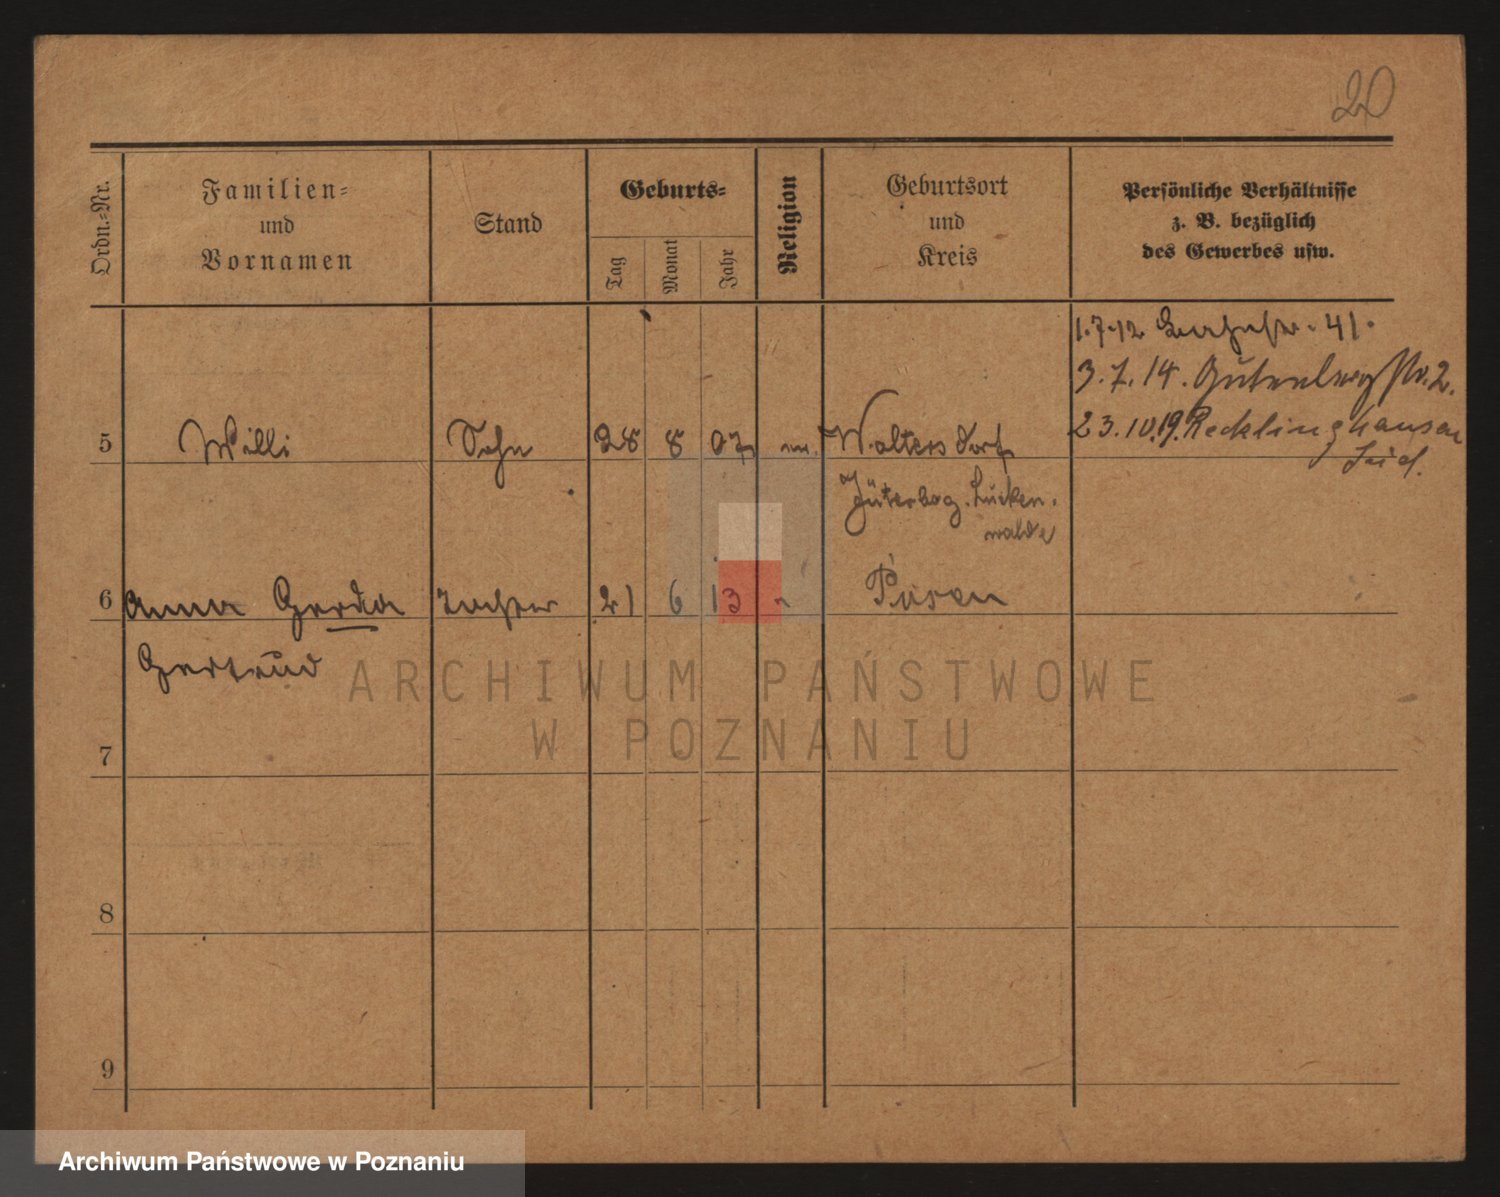 20
Ordn.-Nr.
Familien-
und
Vornamen
Stand
Geburts-
Tag
Monat
Jahr
Religion
Geburtsort
und
Kreis
Persönliche Verhältnisse
z. B. bezüglich
des Gewerbes usw.
1.7.12 41.
3.7.14. Gutenbergstr. 2.
23.10.19. Recklinghausen
Süd.
5 Willi Sohn 28 8 07 Waltersdorf
Jüterbog. Lucken-
walde
6 Anna Gerda Tochter 21 6 13 Posen
Gertrud
7
8
9
ARCHIWUM PAŃSTWOWE
W POZNANIU
Archiwum Państwowe w Poznaniu